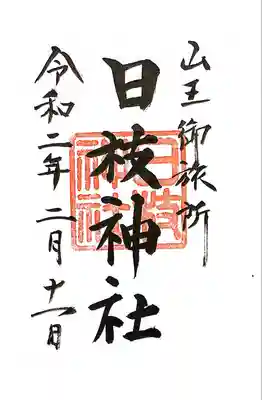 山王御旅所
日枝神社
令和二年二月十一日
日枝神社